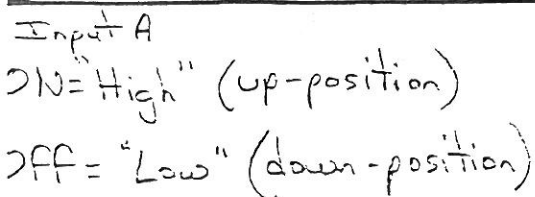 Input A
ON="High" (up-position)
Off="Low" (down-position)